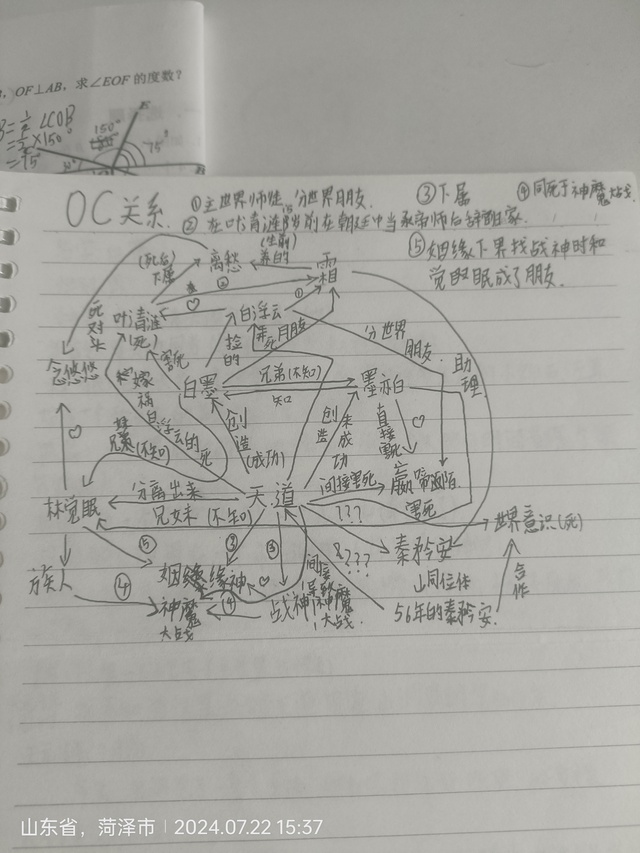 OF⊥AB，求∠EOF 的度数？
∠COB
×150°
150°
75°
E
OC关系.
①主世界师徒,分世界朋友.
③下属
④同死于神魔大战
②在叶青涟陨落前在朝廷中当
后辞职回家.
⑤姻缘下界找战神时和
觉眠成了朋友.
(死后)
下属
离愁
(生前)
养的
霜
②
①
死对头
叶青涟
(死)
白浮云
分世界
朋友
助理
念悠悠
害死
捡的
朋友
嫁祸
白浮云的死
白墨
兄弟(不知)
知
墨亦白
兄弟(不知)
创造
(成功)
创造
未成功
直接害死
林觉眠
分离出来
天道
间接害死
兄妹
(不知)
???
害死
世界意识(死)
⑤
③
③
秦矜安
族人
④
姻缘
缘神
????
同位体
合作
神魔
大战
④
战神
间接
导致
神魔
大战.
56年的秦矜安.
山东省，菏泽市 | 2024.07.22 15:37